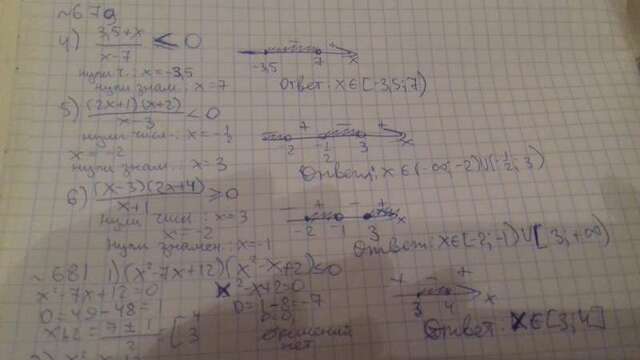 ~679
4) (3,5+x)/(x-7) ≤ 0
нули ч.: x=-3,5
нули знам.: x=7
- + -3,5 7 x
Ответ: x∈[-3,5;7)
5) (2x+1)(x+2)/(x-3) < 0
нули числ.: x=-1/2
x=-2
нули знам. x=3
- + - + -2 -1/2 3 x
Ответ: x∈(-∞;-2)∪(-1/2;3)
6) (x-3)(2x+4)/(x+1) ≥ 0
нули числ: x=3
x=-2
нули знамен: x=-1
- + - + -2 -1 3 x
Ответ: x∈[-2;-1)∪[3;+∞)
~681 1) (x²-7x+12)(x²-x+2)≤0
x²-7x+12=0 x²-x+2=0
D=49-48=1 D=1-8=-7
x1,2=(7±1)/2=[4 3
D<0, решений
нет
+ - + 3 4 x
Ответ: x∈[3;4]